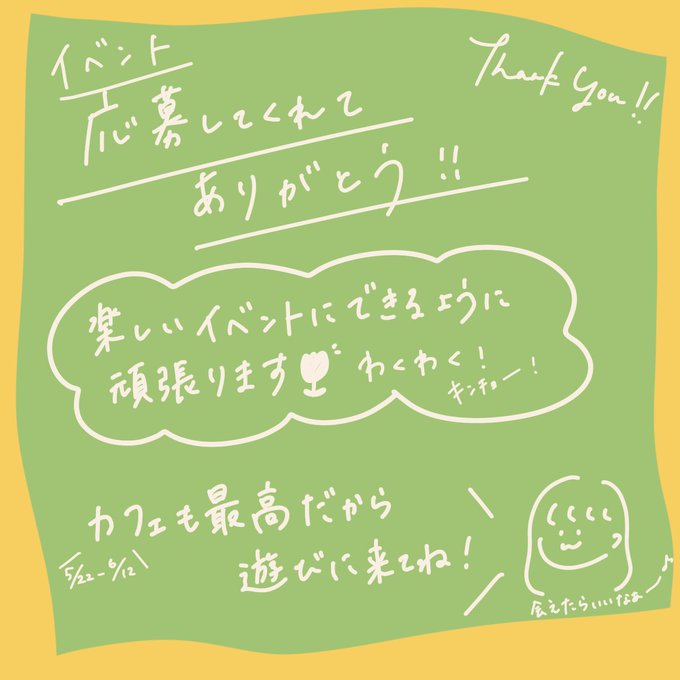 イベント
Thank You!!
応募してくれて
ありがとう!!
楽しいイベントにできるように
頑張ります わくわく!
キンチョー!
カフェも最高だから
5/22-6/12
遊びに来てね!
会えたらいいなぁ〜♪